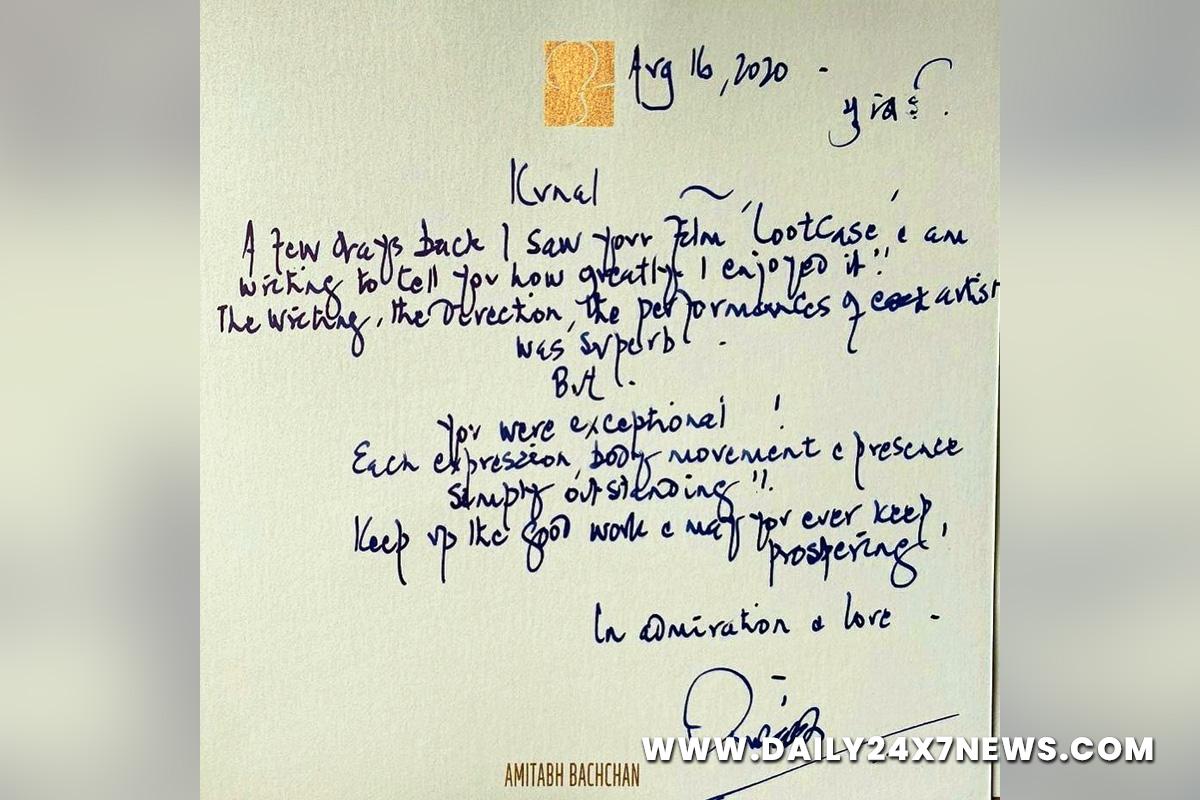 Aug 16, 2020 -
Kunal ~
A few days back I saw your Film 'LootCase' & am
writing to tell you how greatly I enjoyed it!!
The Writing, the Direction, the performances of each artist
was superb -
But .
you were exceptional !
Each expression, body movement & presence
simply outstanding!!
Keep up the good work & may you ever keep,
prospering '
In admiration & love -
AMITABH BACHCHAN
WWW.DAILY24X7NEWS.COM